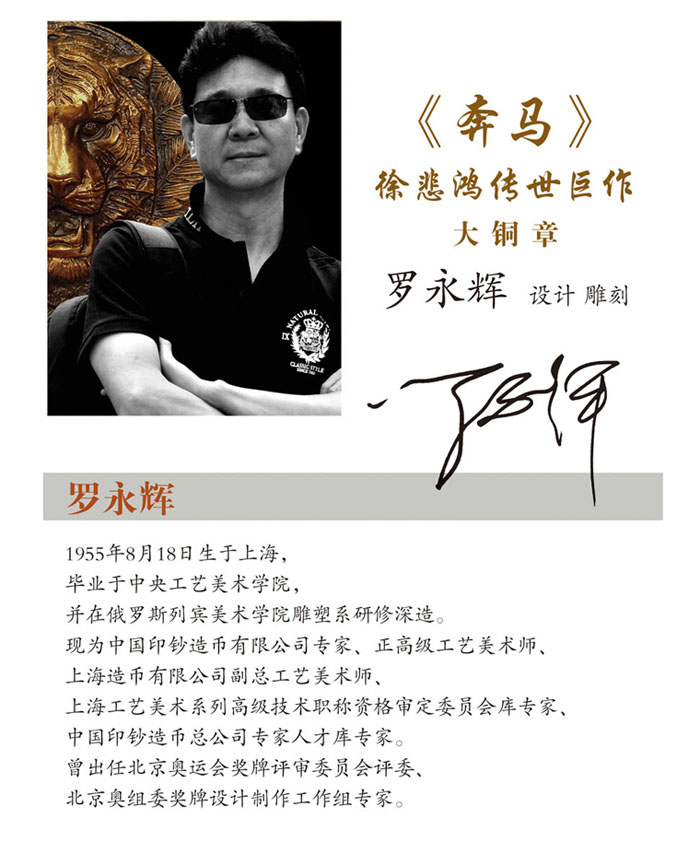 《奔马》
徐悲鸿传世巨作
大铜章
罗永辉 设计 雕刻
NATURAL
IX
CLASSIC STYLE
罗永辉
1955年8月18日生于上海，
毕业于中央工艺美术学院，
并在俄罗斯列宾美术学院雕塑系研修深造。
现为中国印钞造币有限公司专家、正高级工艺美术师、
上海造币有限公司副总工艺美术师、
上海工艺美术系列高级技术职称资格审定委员会库专家、
中国印钞造币总公司专家人才库专家。
曾出任北京奥运会奖牌评审委员会评委、
北京奥组委奖牌设计制作工作组专家。